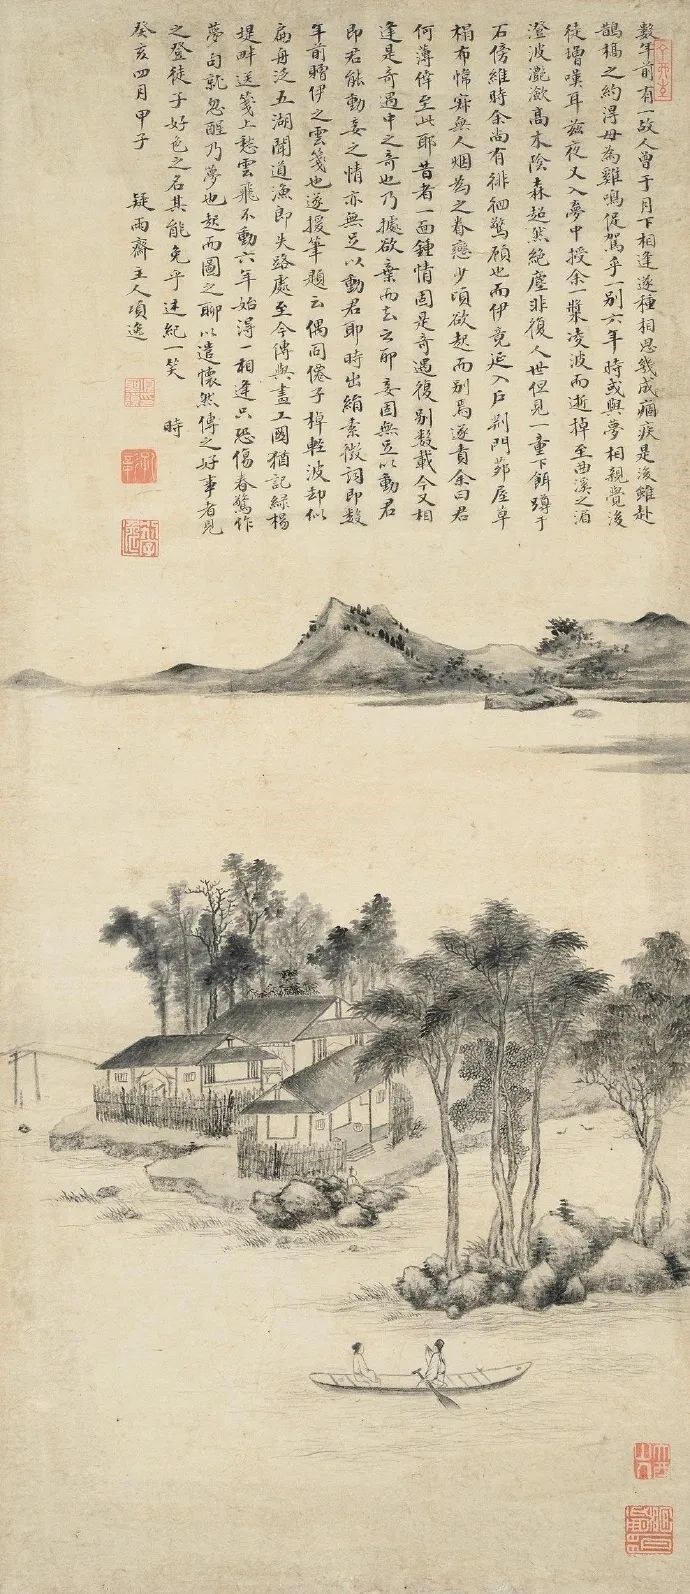 數年前有一故人曾于月下相逢遂種相思幾成痼疾是後雖赴
鵲橋之約得毋為雞鳴促駕乎一別六年時或與夢相親覺後
徒增嘆耳茲夜又入夢中授余一槳凌波而逝掉至曲溪之湄
澄波灔瀲高木陰森超然絕塵非復人世但見一童下餌蹲于
石傍維時余尚有徘徊驚顧也而伊竟延入戶荊門茆屋草
榻布幃寂無人烟為之眷戀少頃欲起而別焉遂責余曰君
何薄倖至此耶昔者一面鍾情固是奇遇復別數載今又相
逢是奇遇中之奇也乃據欲棄而去之耶妾固無足以動君
即君能動妾之情亦無足以動君耶時出絹素徵詞即數
年前贈伊之雲箋也遂援筆題云偶同僊子掉輕波却似
扁舟泛五湖聞道漁郎失路處至今傳與畫工圖猶記綠楊
堤畔迋箋上愁雲飛不動六年始得一相逢只恐傷春驚作
夢句就忽醒乃夢也起而圖之聊以遣懷然傳之好事者見
之登徒子好色之名其能免乎述紀一笑　時
癸亥四月甲子　疑雨齋主人項逵